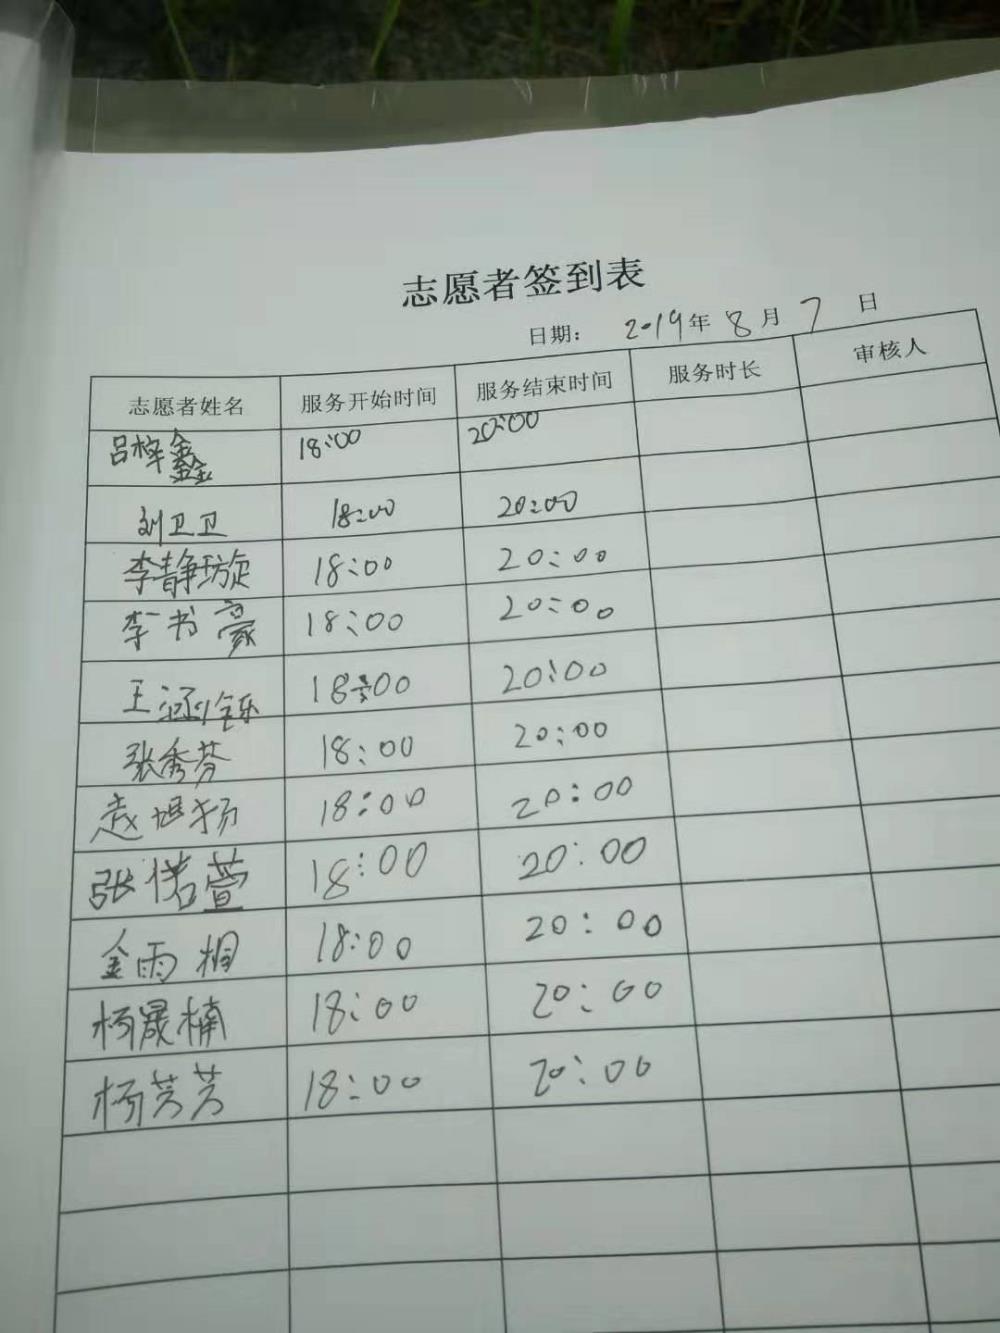 志愿者签到表
日期: 2019年 8月 7日
志愿者姓名 服务开始时间 服务结束时间 服务时长 审核人
吕梓鑫 18:00 20:00
刘卫卫 18:00 20:00
李静璇 18:00 20:00
李书豪 18:00 20:00
王涵铄 18:00 20:00
张秀芬 18:00 20:00
赵旭扬 18:00 20:00
张偌萱 18:00 20:00
金雨桐 18:00 20:00
杨晟楠 18:00 20:00
杨芳芳 18:00 20:00